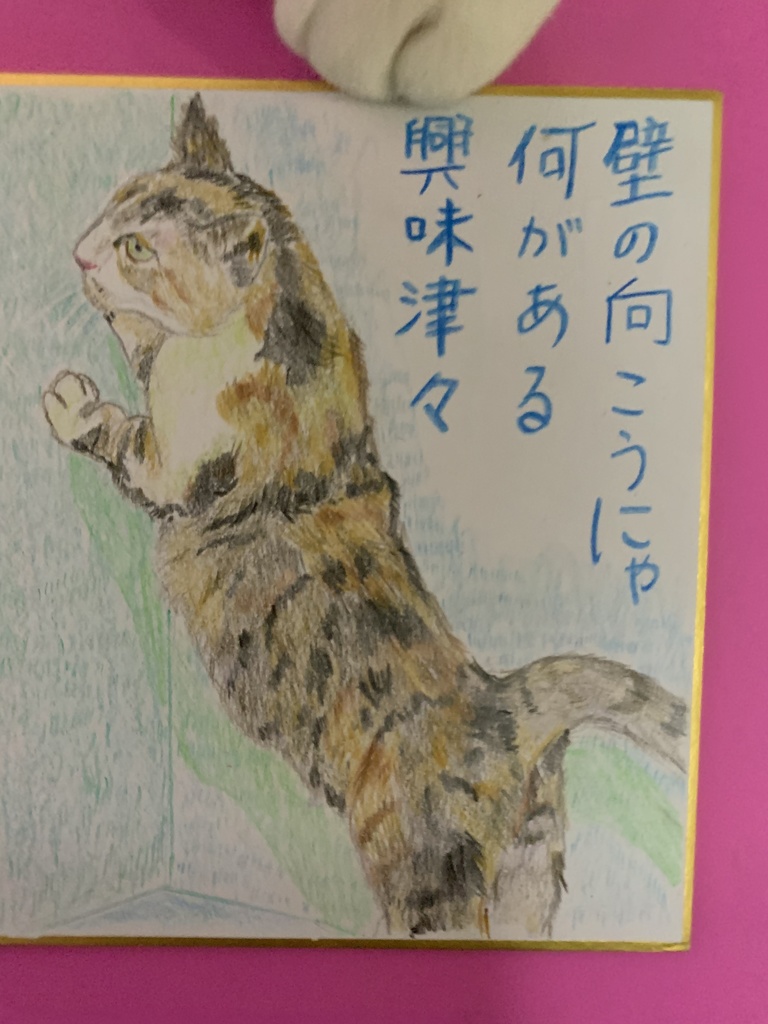 壁の向こうにゃ
何がある
興味津々